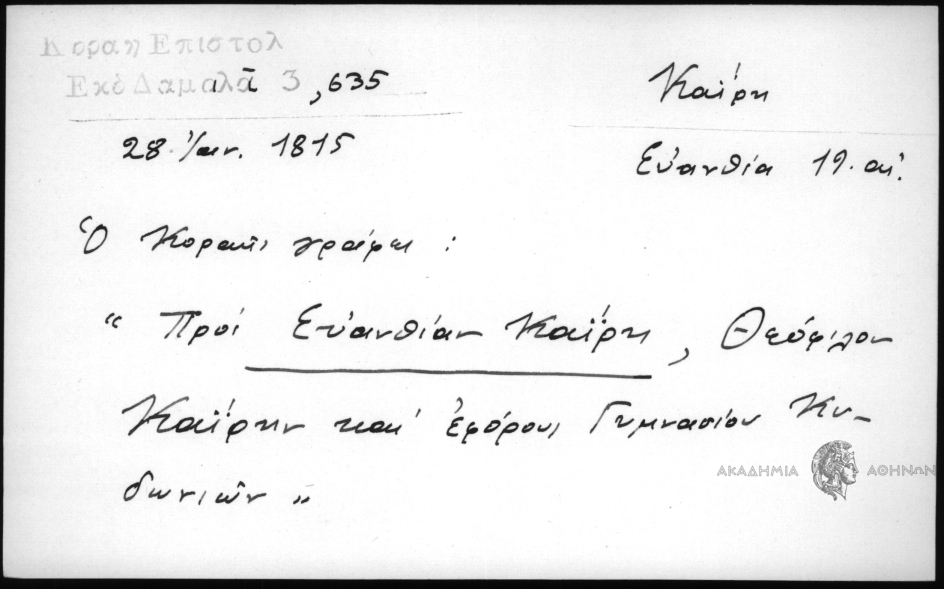 Κοραη Επιστολ
Εκδ Δαμαλᾶ 3, 635
Καΐρη
28 Ἰαν. 1815
Εὐανθία 19. αἰ.
Ὁ Κοραῆς γράφει :
“ Πρὸς Εὐανθίαν Καΐρη, Θεόφιλον
Καΐρην καὶ ἐφόρους Γυμνασίου Κυ-
δωνιῶν „
ΑΚΑΔΗΜΙΑ ΑΘΗΝΩΝ